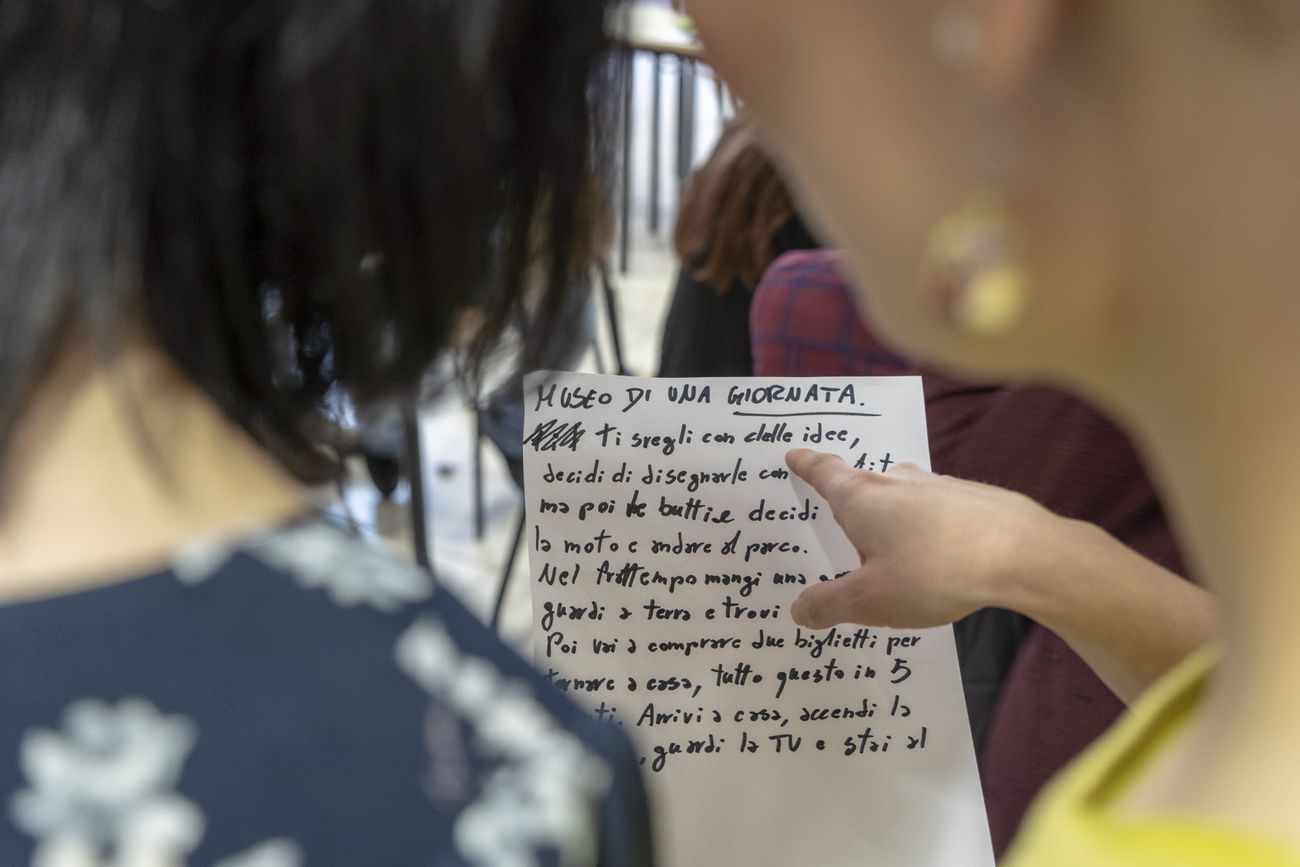 MUSEO DI UNA GIORNATA.
Ti svegli con delle idee,
decidi di disegnarle con
ma poi le butti e decidi
la moto e andare al parco.
Nel frattempo mangi una
guardi a terra e trovi
Poi vai a comprare due biglietti per
tornare a casa, tutto questo in 5
Arrivi a casa, accendi la
, guardi la TV e stai al